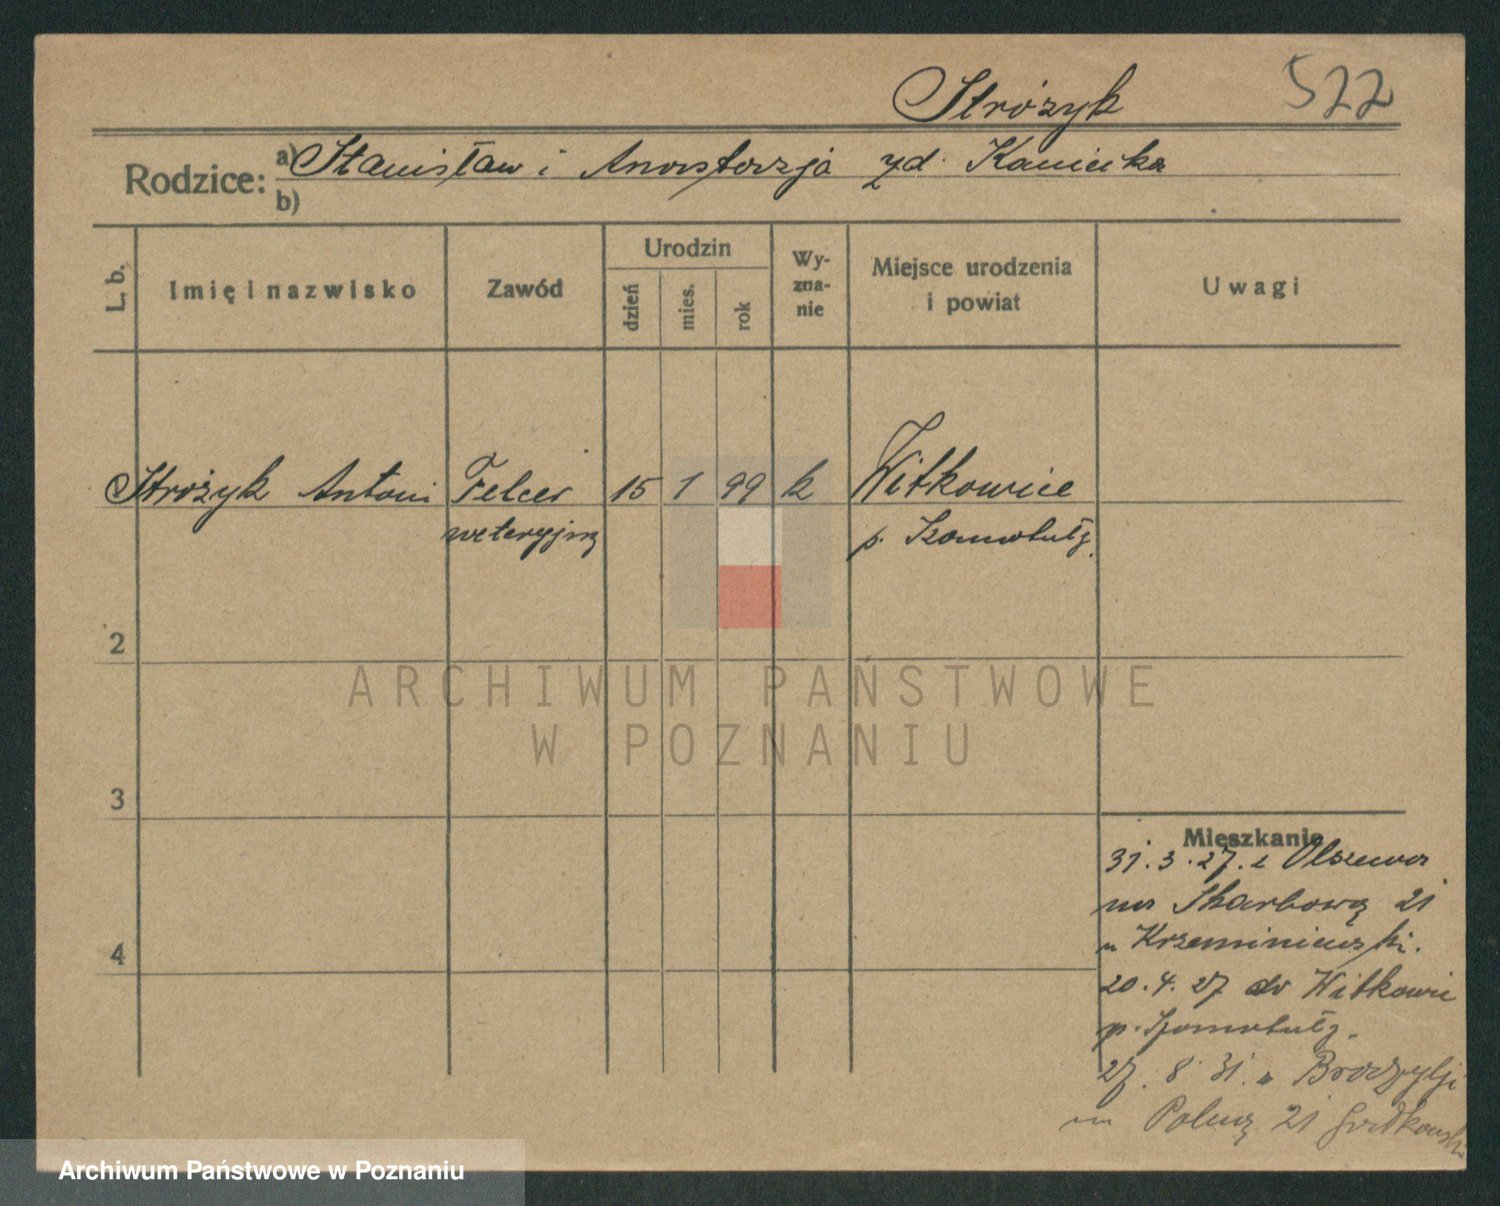 Stróżyk 522
Rodzice: a) Stanisław i Anastazja zd. Kaniecka
b)
L. b.
Imię i nazwisko
Zawód
Urodzin
dzień
mies.
rok
Wy-
zna-
nie
Miejsce urodzenia
i powiat
Uwagi
Stróżyk Antoni Felcer 15 1 99 k Witkowice
weteryjny p. Szamotuły
2
3
4
ARCHIWUM PAŃSTWOWE
W POZNANIU
Mieszkanie
31.3.27. z Olszewa
na Skarbową 21
u Krzeminiewski.
20.4.27 do Witkowic
p. Szamotuły.
27. 8 31. z Brazylji
na Polną 21
Archiwum Państwowe w Poznaniu